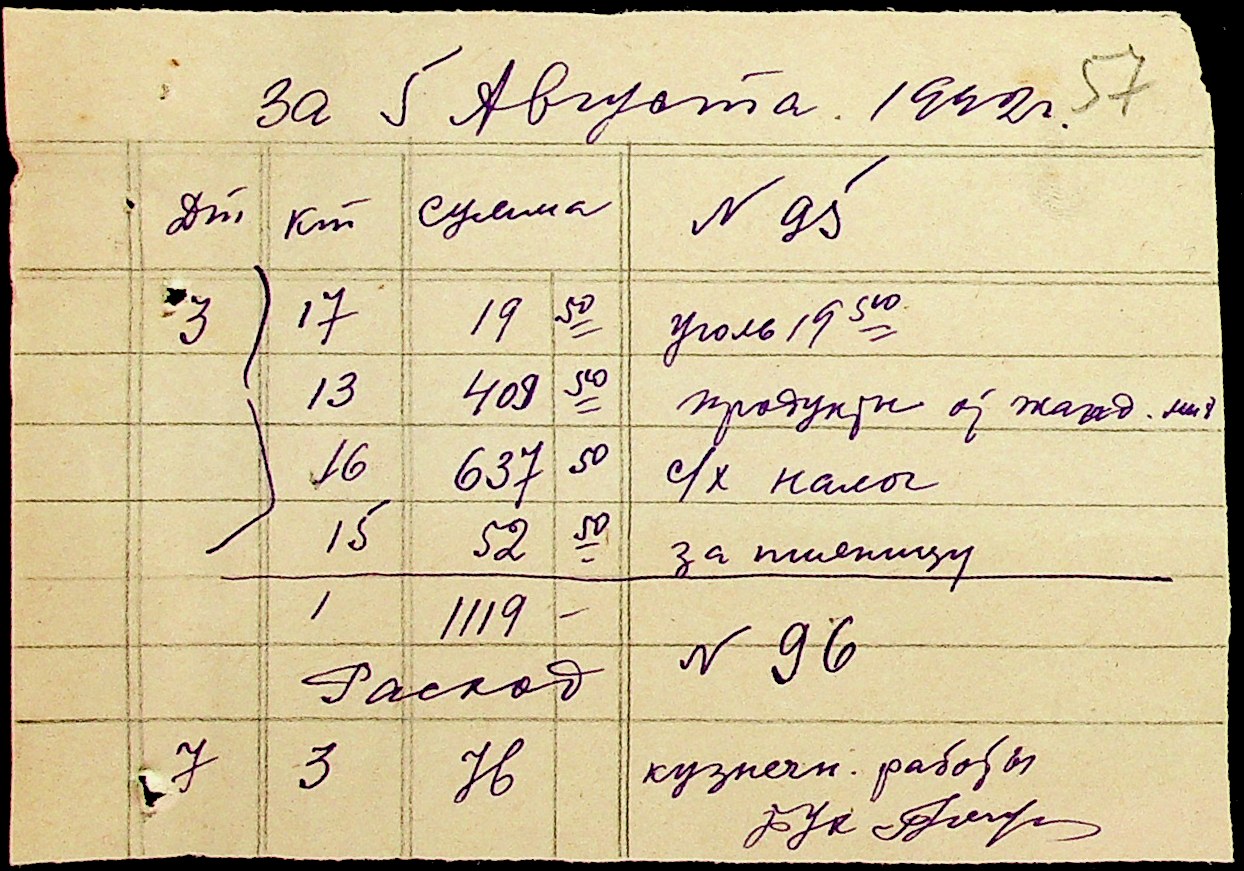 57
За 5 Августа. 1942г.
Дт Кт Сумма N 95
3 17 19 50 уголь 19 50
13 409 50 продукты от
16 637 50 с/х налог
15 52 50 за пшеницу
1 1119 -
Расход N 96
7 3 76 кузнечн. работы
Бух